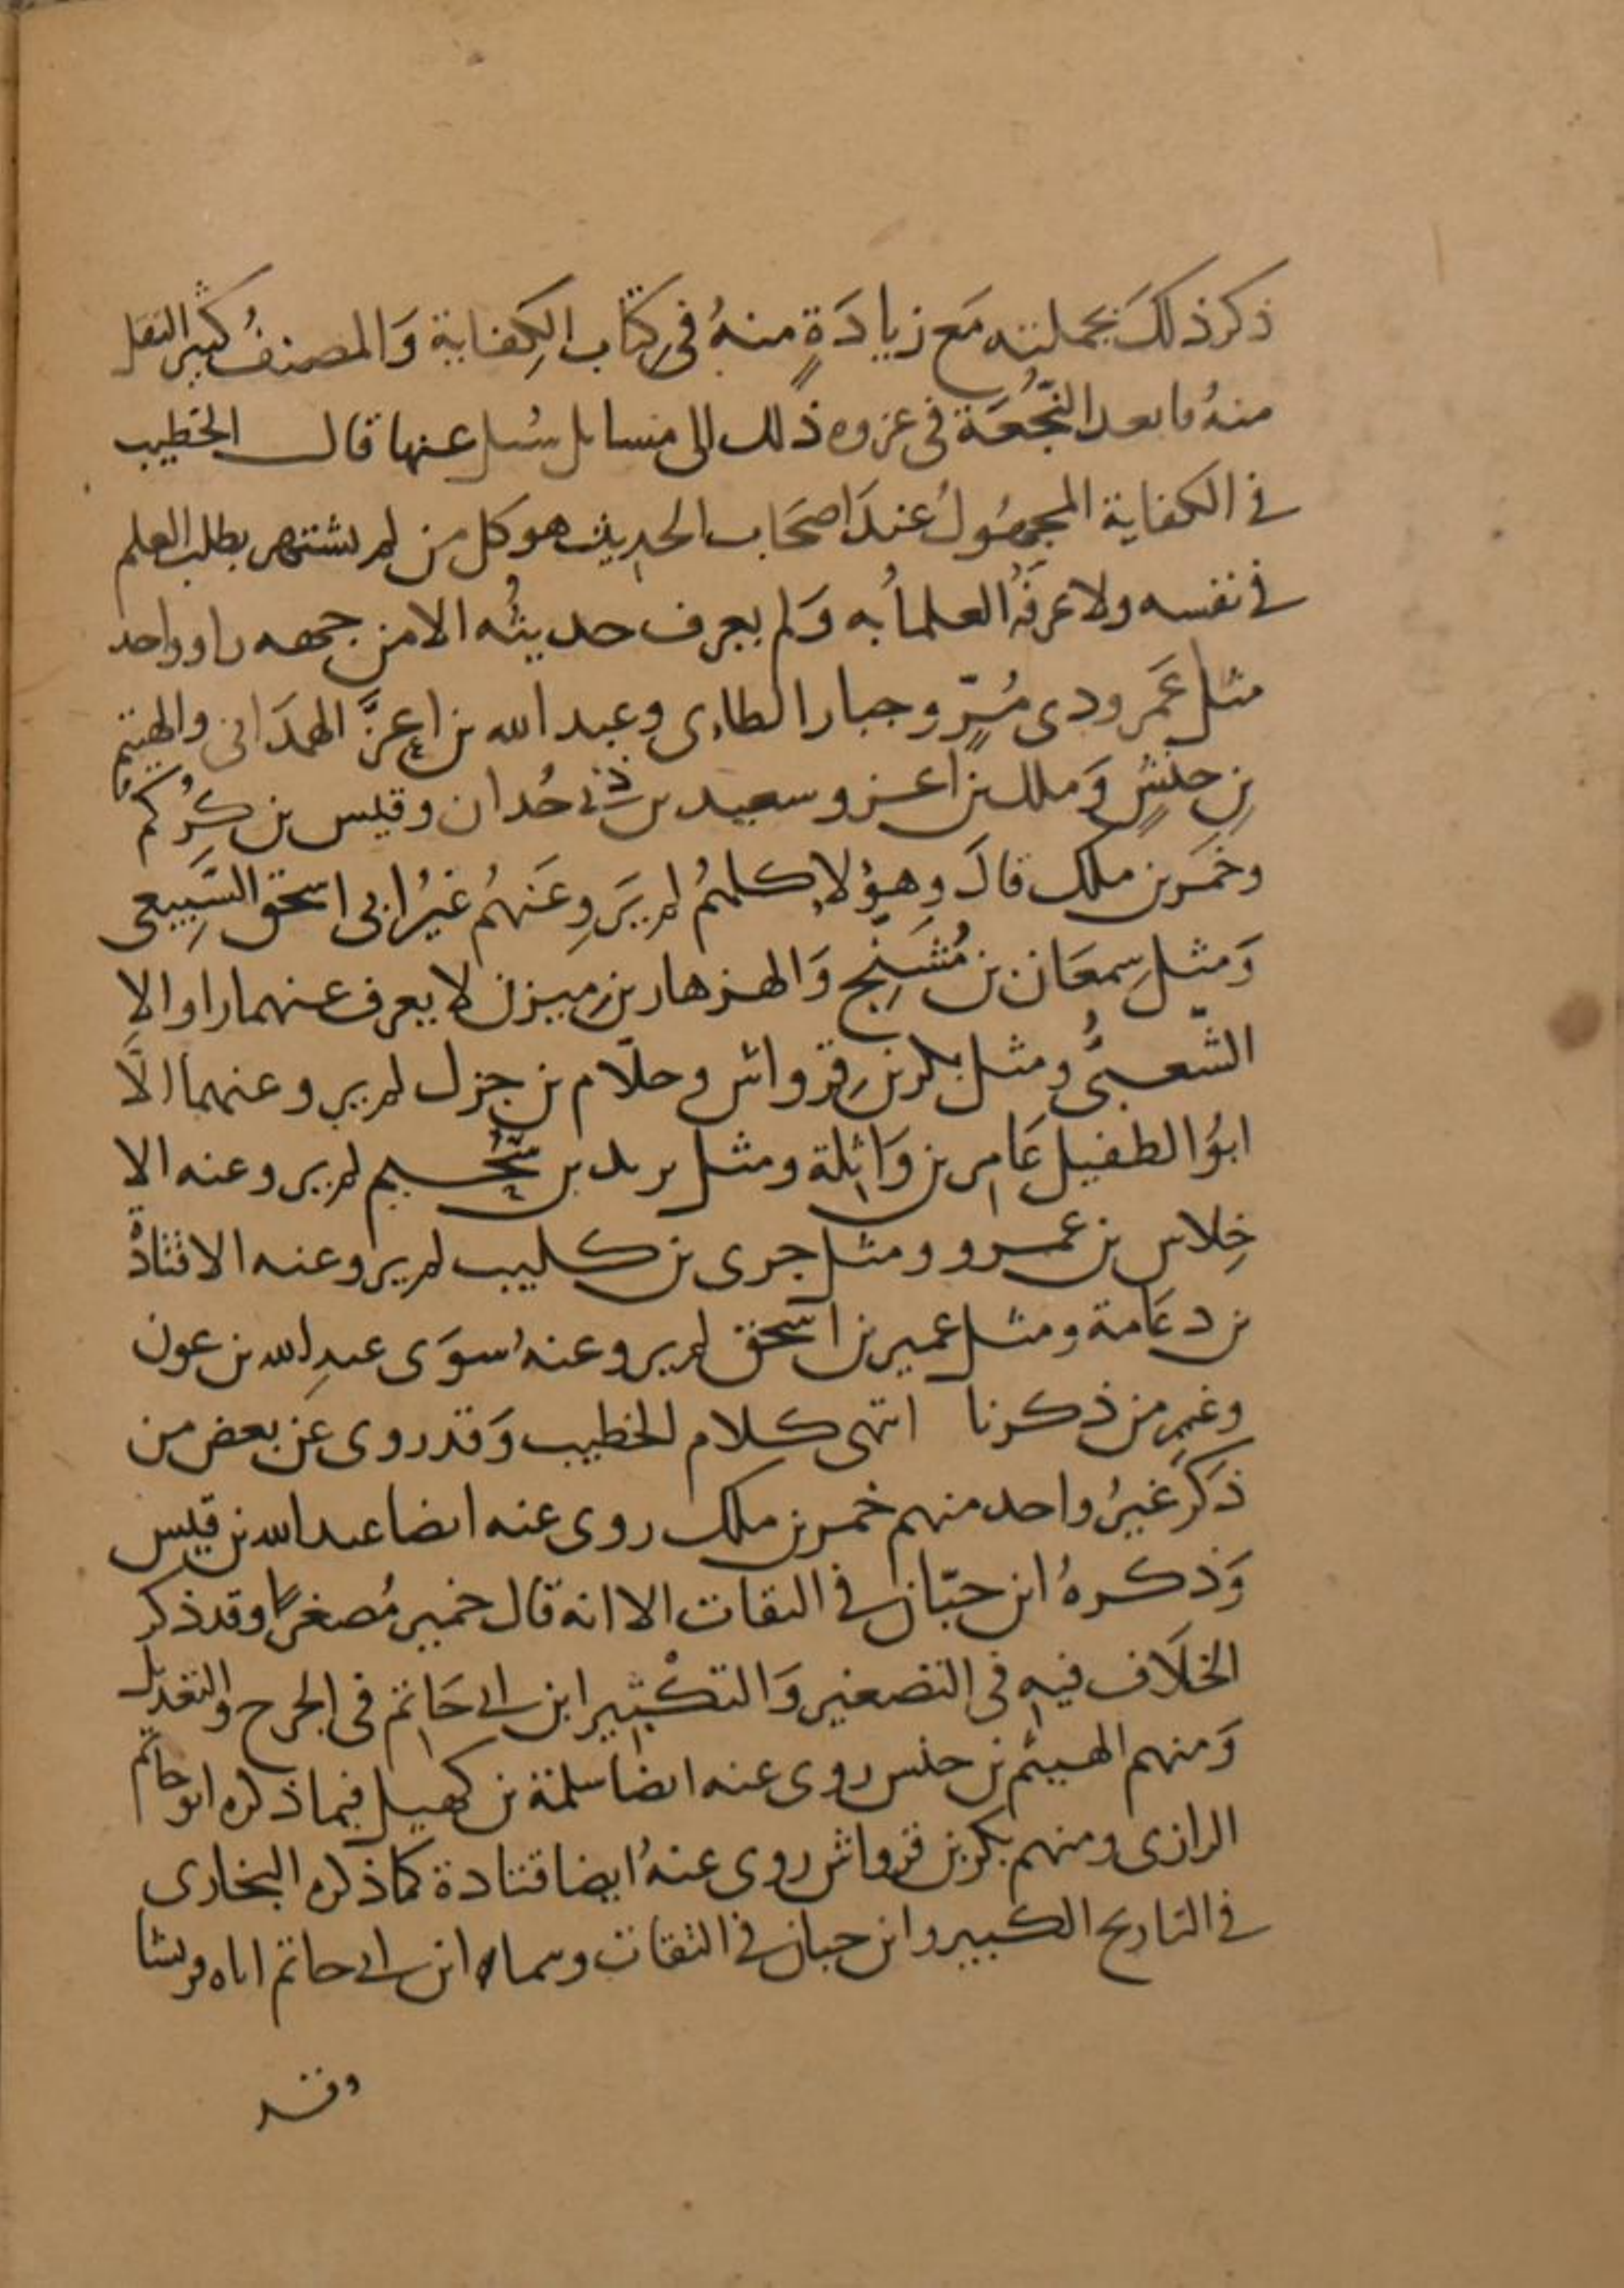 ذكر ذلك بجملته مَع زيادَةٍ منهُ في كتاب الكِفاية وَالمصنفُ كثير النقل
منهُ فابعد النُّجْعَة في عزوه ذلك الى مسايل سُيل عنها قال الخطيب
في الكفاية المجهُولُ عندَ اصحَاب الحديث هو كل من لم يشتهر بطلب العلم
في نفسه ولا عرفَهُ العلماُ به وَلم يعرف حديثُه الا من جهه راو واحد
مثل عَمرو دى مُرٍّ وجبار الطاءى وعبد الله بن اعزَّ الهمدَانى والهيثم
بن حنشٍ وَملك بن اعز وسعيد بن ذى حُدان وقيس بن كُركم
وخَمر بن ملك قالَ وهؤلاءِ كلهُم لم يَروِ عَنهُم غيرُ ابى اسحق السَّبِيعى
وَمثل سِمعَان بن مُشَنِّج وَالهزهار بن ميزن لا يعرف عنهما راو الا
الشّعبىُّ ومثل بكر بن قرواش وحلّام بن جزل لم يرو عنهما الَّا
ابوُ الطفيل عَامر بن وَاثلة ومثل يريد بن سُحيم لم يرو عنه الا
خِلاس بن عمرو ومثل جرى بن كليب لم يرو عنه الا قتادةْ
بن دعَامة ومثل عمير بن اسحق لم يرو عنهُ سوَى عبدِ الله بن عون
وغير من ذكرنا انتهى كلام الخطيب وَقد روى عن بعض من
ذكرَ غيرُ واحد منهم خمر بن ملك روى عنه ايضا عبد الله بن قيس
وَذكرهُ ابن حبّان في الثقات الا انه قال خمير مُصغرًا وقد ذكر
الخلَاف فيهِ في التصغير وَالتكْبير ابن ابى حَاتم في الجرح والتعديل
وَمنهم الهيثم بن حنس روى عنه ايضا سلمة بن كهيل فيما ذكره ابو حاتم
الرازى ومنهم بكر بن قرواش روى عنهُ ايضا قتادة كما ذكره البخارى
في التاريخ الكبير وابن حبان في الثقات وسماه ابن ابى حاتم اباه قريشا
وقد